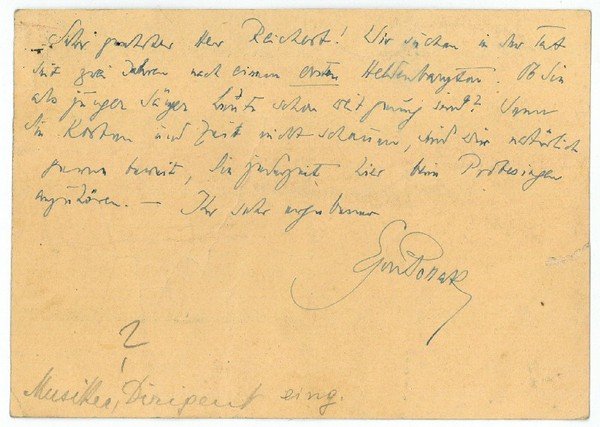 Sehr geehrter Herr Reichert! Wir suchen in der Tat
seit zwei Jahren nach einem ersten Heldenbariton. Ob Sie
als junger Sänger heute schon reif genug sind? Wenn
Sie Kosten und Zeit nicht scheuen, sind wir natürlich
gerne bereit, Sie jederzeit hier beim Probesingen
anzuhören. — Ihr sehr ergebener
Egon Pollak
?
Musiker, Dirigent eing.